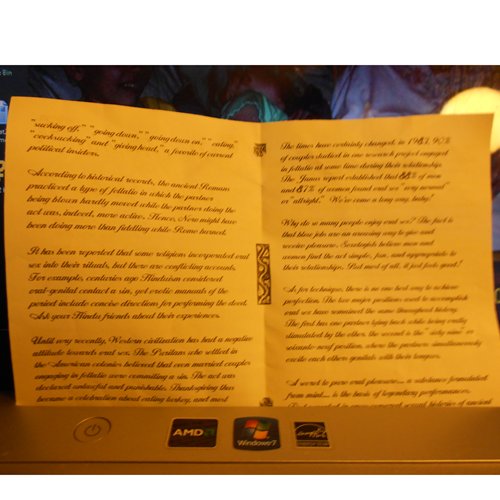 Bin
"sucking off," "going down," "going down on," "eating,"
"cocksucking" and "giving head," a favorite of current
political insiders.
According to historical records, the ancient Romans
practiced a type of fellatio in which the partner
being blown hardly moved while the partner doing the
act was, indeed, more active. Hence, Nero might have
been doing more than fiddling while Rome burned.
It has been reported that some religions incorporated oral
sex into their rituals, but there are conflicting accounts.
For example, centuries ago Hinduism considered
oral-genital contact a sin, yet erotic manuals of the
period include concise directions for performing the deed.
Ask your Hindu friends about their experiences.
Until very recently, Western civilization has had a negative
attitude towards oral sex. The Puritans who settled in
the American colonies believed that even married couples
engaging in fellatio were commiting a sin. The act was
declared unlawful and punishable. Thanksgiving thus
became a celebration about eating turkey, and most
The times have certainly changed, in 1983, 90%
of couples studied in one research project engaged
in fellatio at some time during their relationship.
The Janus report established that 88% of men
and 87% of women found oral sex "very normal"
or "allright." We've come a long way, baby!
Why do so many people enjoy oral sex? The fact is
that blow jobs are an amazing way to give and
receive pleasure. Sexologists believe men and
women find the act simple, fun, and appropriate to
their relationships. But most of all, it just feels good!
As for technique, there is no one best way to achieve
perfection. The two major positions used to accomplish
oral sex have remained the same throughout history.
The first has one partner lying back while being orally
stimulated by the other, the second is the "sixty nine" or
soixante-neuf position, where the partners simultaneously
excite each others genitals with their tongues.
A secret to pure oral pleasure... a substance formulated
from mint... is the basis of legendary performances.
AMD
Windows 7